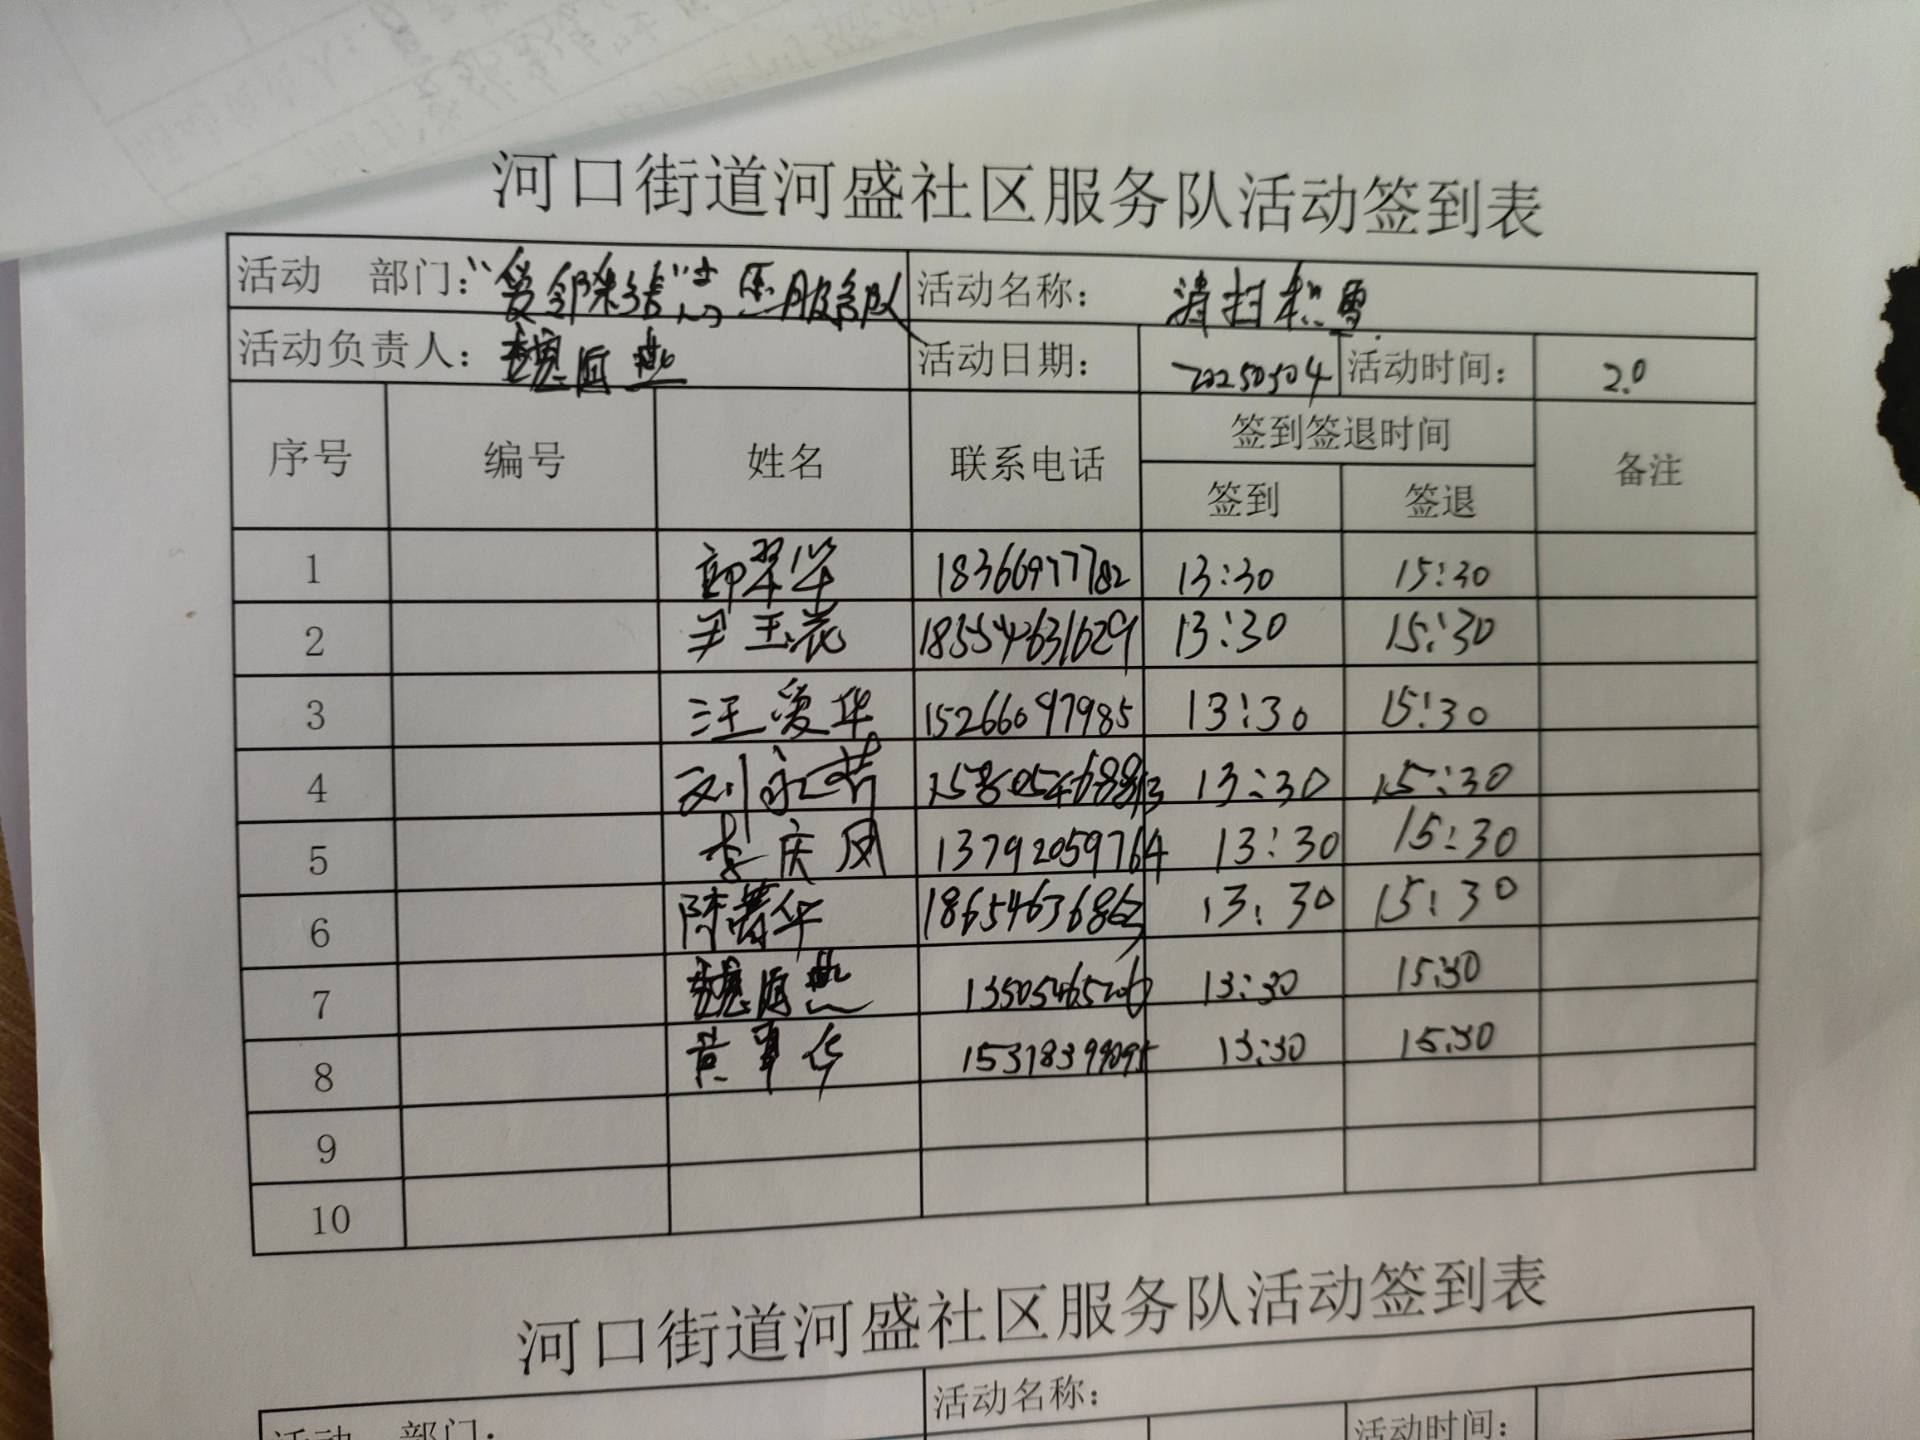 河口街道河盛社区服务队活动签到表
活动 部门：“爱邻” 服务队 活动名称： 清扫积雪
活动负责人： 魏海燕 活动日期： 20250304 活动时间： 2.0
序号 编号 姓名 联系电话 签到签退时间 备注
签到 签退
1 郭翠华 18366977782 13:30 15:30
2 尹玉花 18554631629 13:30 15:30
3 汪爱华 15266097985 13:30 15:30
4 刘永芳 13:30 15:30
5 李庆凤 13792059764 13:30 15:30
6 陈菁华 18654636863 13:30 15:30
7 魏海燕 13505465206 13:30 15:30
8 黄军华 13:30 15:30
9
10
河口街道河盛社区服务队活动签到表
活动 部门： 活动名称：
活动时间：